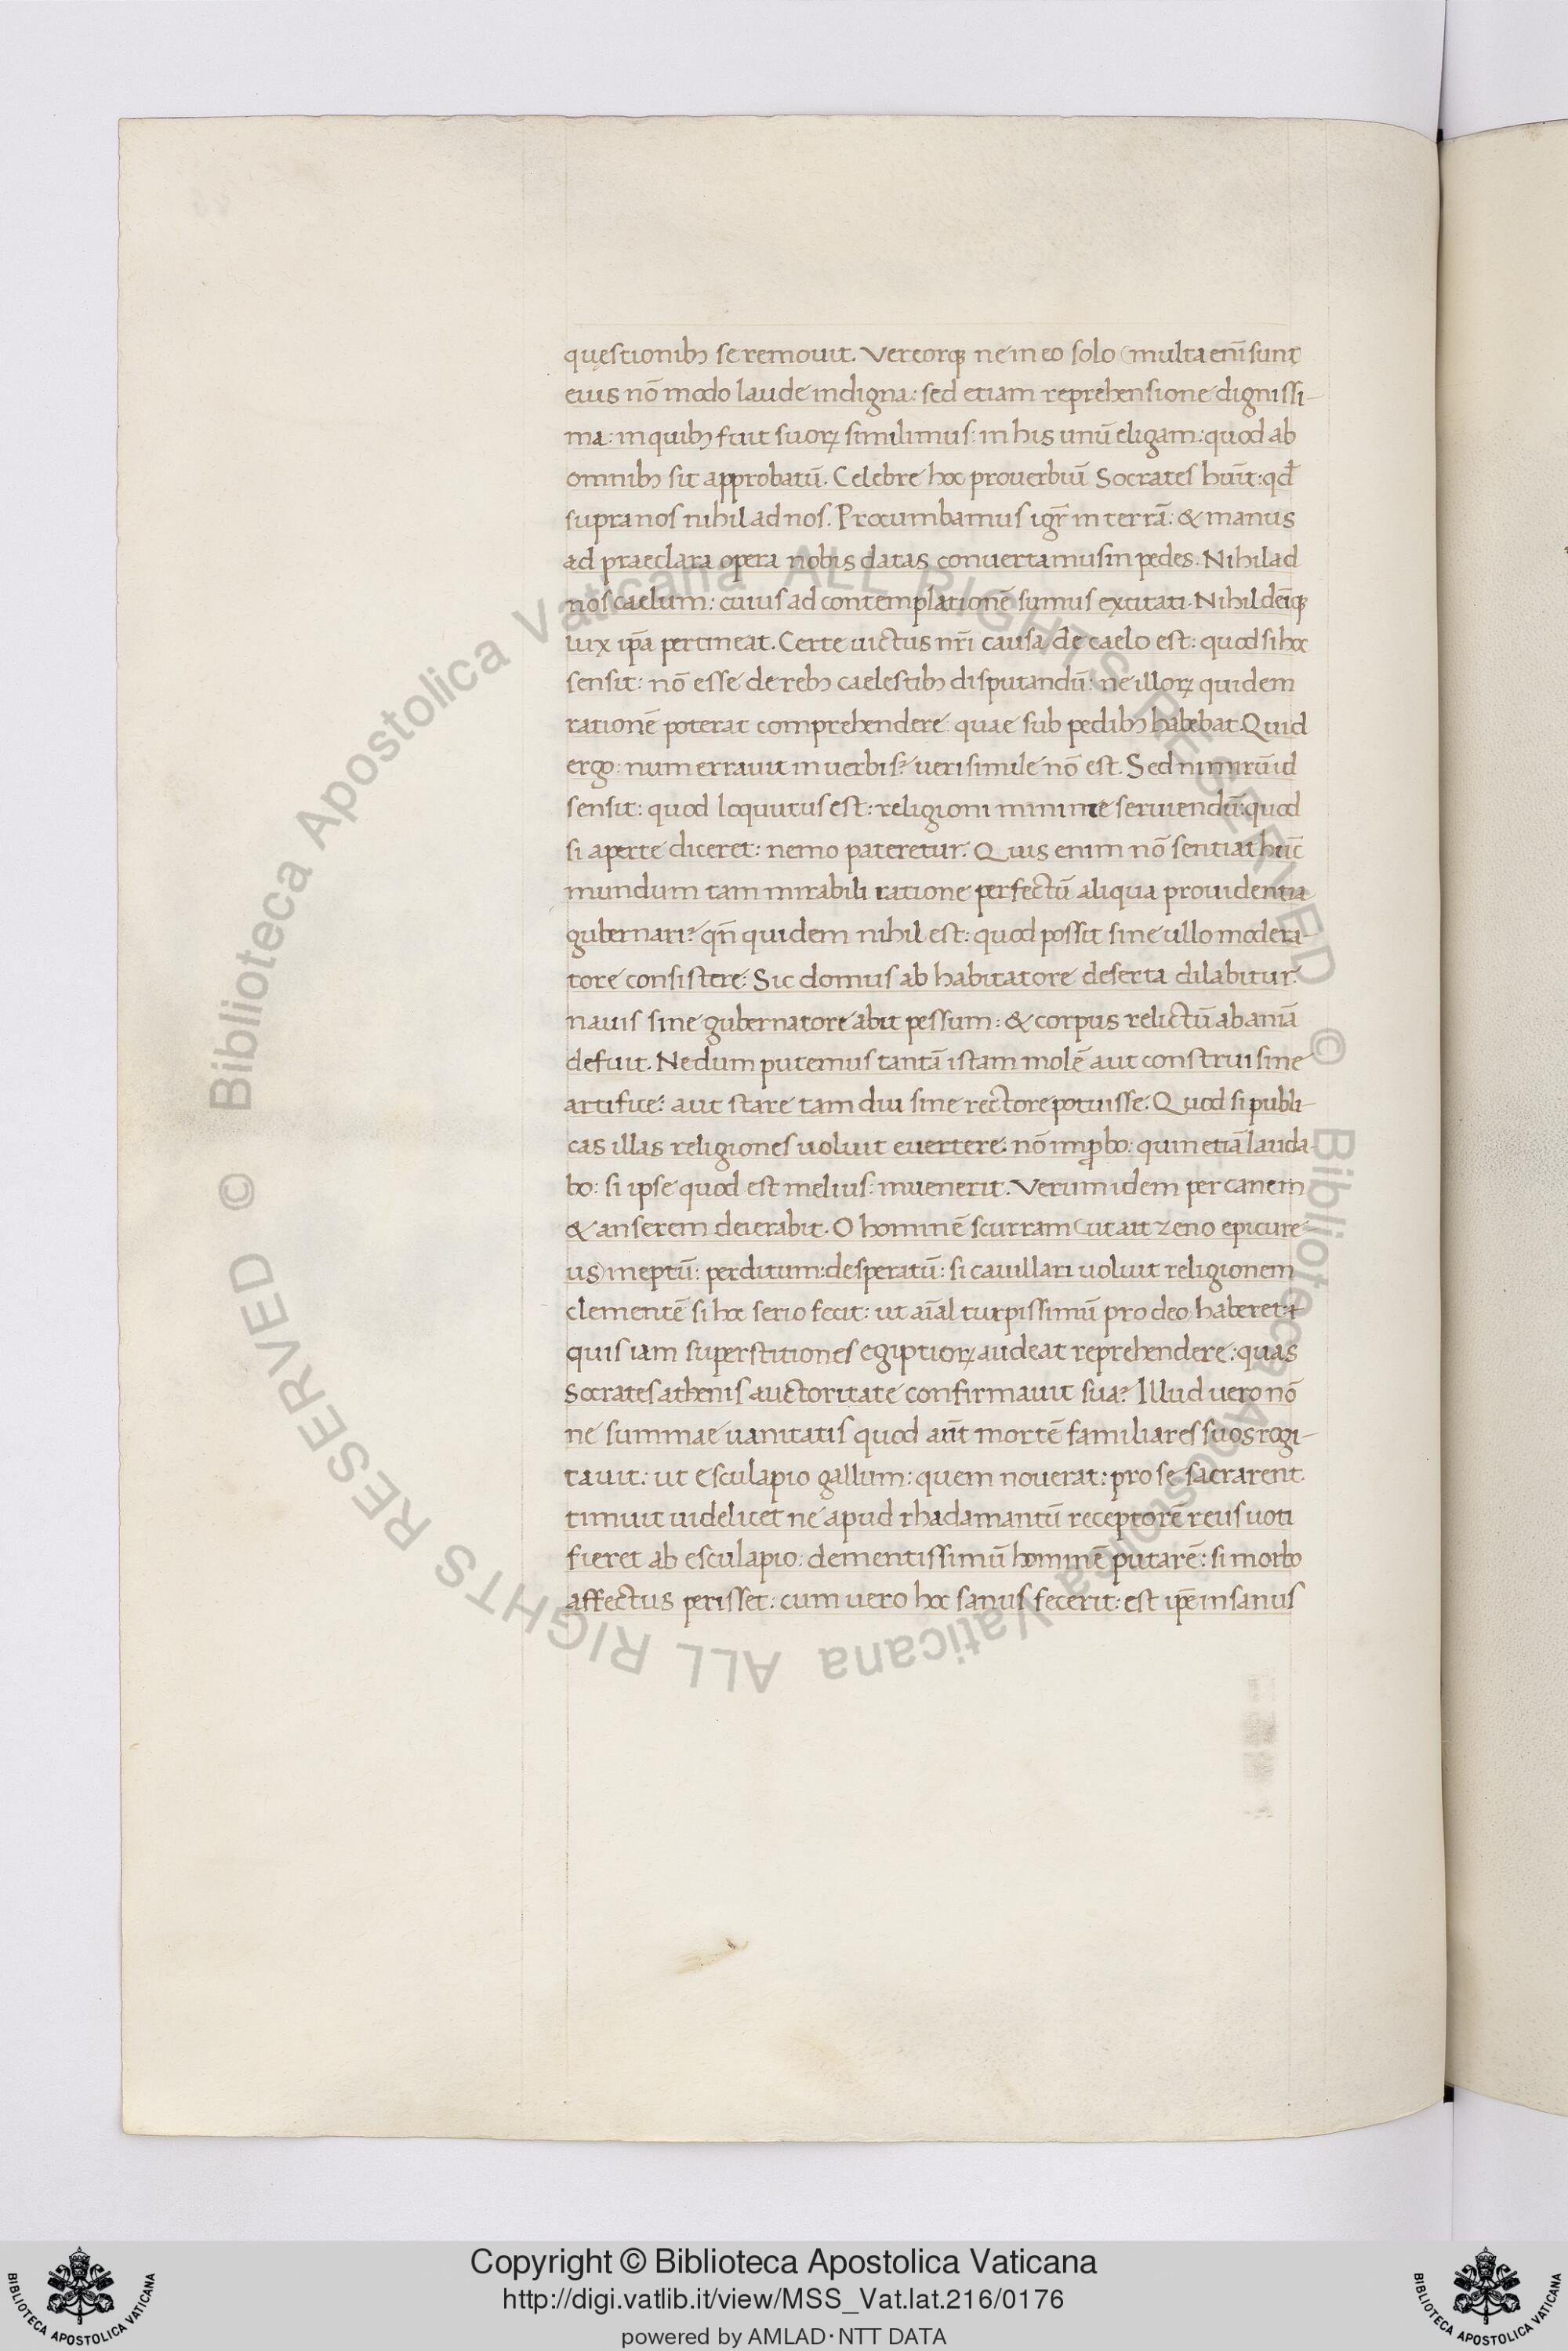 quęstionibꝫ se remouit. Vereorqꝫ ne in eo solo (multa enī sunt
eius nō modo laude indigna: sed etiam reprehensione dignissi-
ma: in quibꝫ fuit suorꝝ similimus: in his unū eligam: quod ab
omnibꝫ sit approbatū. Celebre hoc prouerbiū Socrates huīt: qđ
supra nos nihil ad nos. Procumbamus igr̄ in terrā: & manus
ad praeclara opera nobis datas conuertamus in pedes. Nihil ad
nos caelum: cuius ad contemplationē sumus excitati. Nihil deīqꝫ
lux ip̄a pertineat. Certe uictus nr̄i causa de caelo est: quod si hoc
sensit: nō esse de rebꝫ caelestibꝫ disputandū: ne illorꝝ quidem
rationē poterat comprehendere quae sub pedibꝫ habebat. Quid
ergo: num errauit in uerbis? uerisimile nō est. Sed nimirū id
sensit: quod loquutus est: religioni minime seruiendū: quod
si aperte diceret: nemo pateretur. Quis enim nō sentiat hūc
mundum tam mirabili ratione perfectū aliqua prouidentia
gubernari? qn̄ quidem nihil est: quod possit sine ullo modera-
tore consistere: Sic domus ab habitatore deserta dilabitur.
nauis sine gubernatore abit pessum: & corpus relictū ab anīa
defuit. Nedum putemus tantā istam molē aut construi sine
artifice: aut stare tam diu sine rectore potuisse. Quod si publi-
cas illas religiones uoluit euertere: nō improbo: quin etiā lauda-
bo: si ipse quod est melius: inuenerit. Verum idem per canem
& anserem deierabit. O hominē scurram (ut ait zeno epicure-
us) ineptū: perditum: desperatū: si cauillari uoluit religionem
clementē si hoc serio fecit: ut aīal turpissimū pro deo haberet:
quis iam superstitiones egiptiorꝝ audeat reprehendere: quas
Socrates athenis auctoritate confirmauit sua? Illud uero nō
ne summae uanitatis quod añt mortē familiares suos rogi-
tauit: ut esculapio gallum: quem nouerat: pro se sacrarent
timuit uidelicet ne apud rhadamantū receptorē reus uoti
fieret ab esculapio: dementissimū hominē putarē: si morbo
affectus perisset: cum uero hoc sanus fecerit: est ip̄e insanus
© Biblioteca Apostolica Vaticana ALL RIGHTS RESERVED © Biblioteca Apostolica Vaticana ALL RIGHTS RESERVED
Copyright © Biblioteca Apostolica Vaticana
http://digi.vatlib.it/view/MSS_Vat.lat.216/0176
powered by AMLAD·NTT DATA
BIBLIOTECA APOSTOLICA VATICANA
BIBLIOTECA APOSTOLICA VATICANA